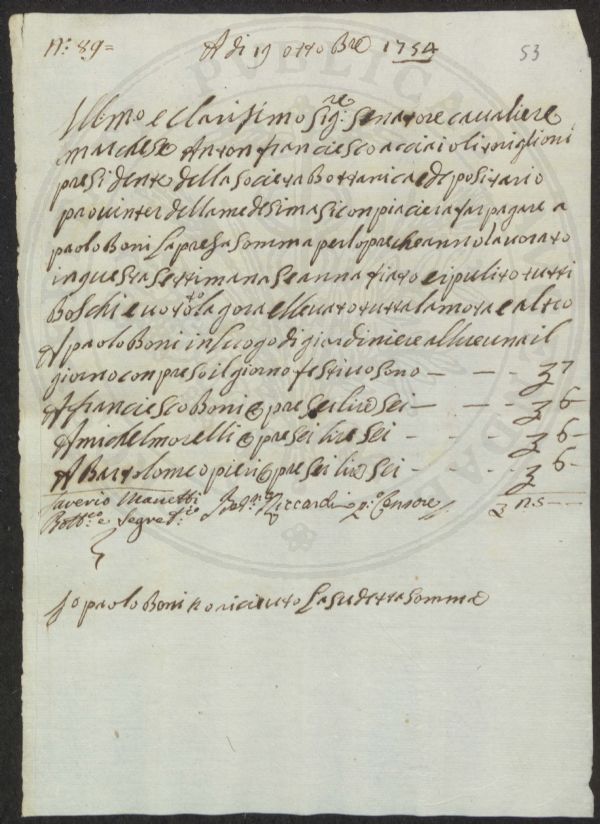 N.º 89= A di 19 ottobre 1754 53
Illmo e Clarisimo Sig.re Senatore Cavaliere
marchese Anton franciesco acciaioli toriglioni
presidente della societa Bottanica e depositario
pro uinter della medesima si conpiaciera far pagare a
paolo Boni la presa somma per lopre che anno lauorato
in questa settimana se anna fiato e ripulito tutti
Boschi e uoto.to la gora e lleuato tutta la mota e altro
A paolo Boni in luogo di giardiniere a llire una il
giorno conpreso il giorno festiuo sono — — — 7
A franciesco Boni opre sei lire sei — — — 6 —
A michel morelli opre sei lire sei — — — 6 —
A Bartolomeo pieri opre sei lire sei — — — 6 —
Saverio Manetti
Bott.co e Segret.rio Riccardi p.º Censore 25 —
Io paolo Boni ho riceuuto la sudetta somma